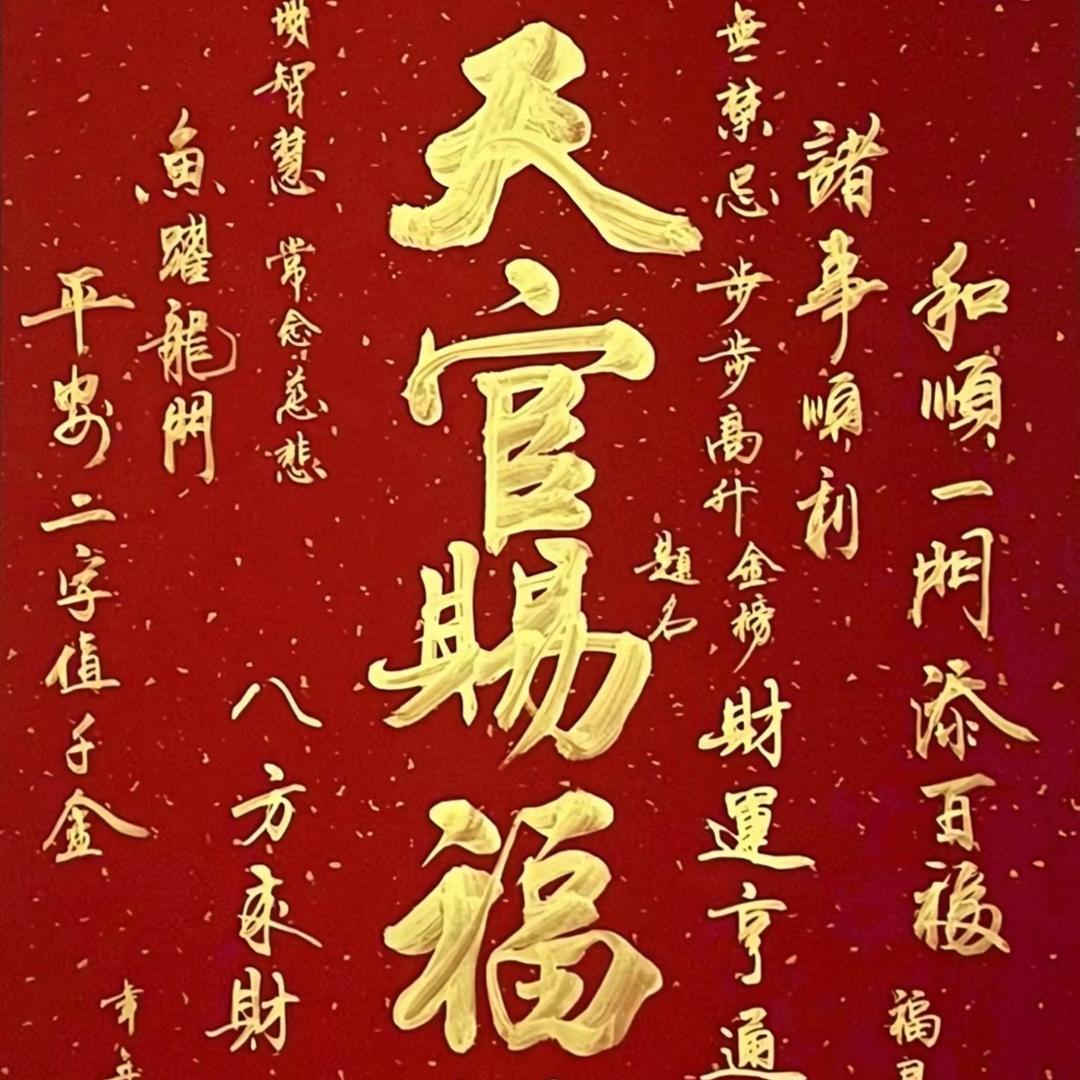 和順一門添百福
福
諸事順利
無禁忌
步步高升
金榜
題名
財運亨通
天官賜福
智慧
常念慈悲
八方來財
魚躍龍門
平安二字值千金
幸